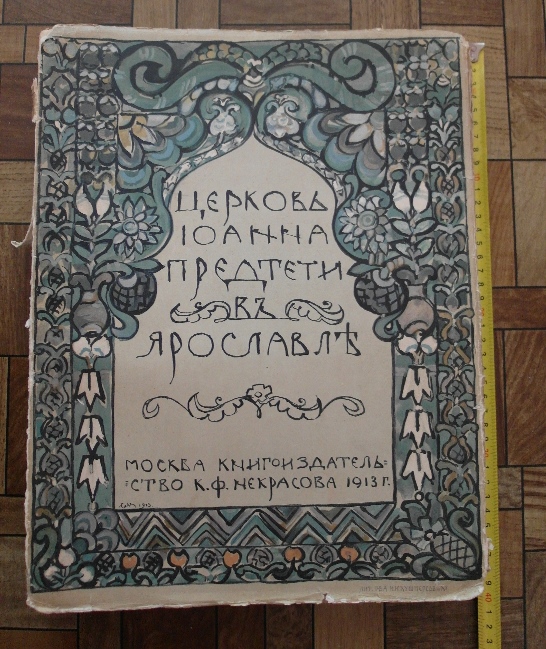 ЦЕРКОВЬ
IОАННА
ПРЕДТЕТИ
ВЪ
ЯРОСЛАВЛѢ
МОСКВА КНИГОИЗДАТЕЛЬ=
=СТВО К.Ф. НЕКРАСОВА 1913 Г.